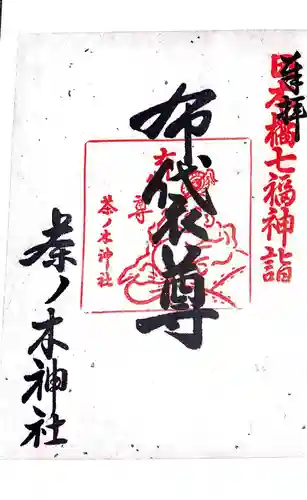 奉拝
日本橋七福神詣
布袋尊
茶ノ木神社
茶ノ木神社